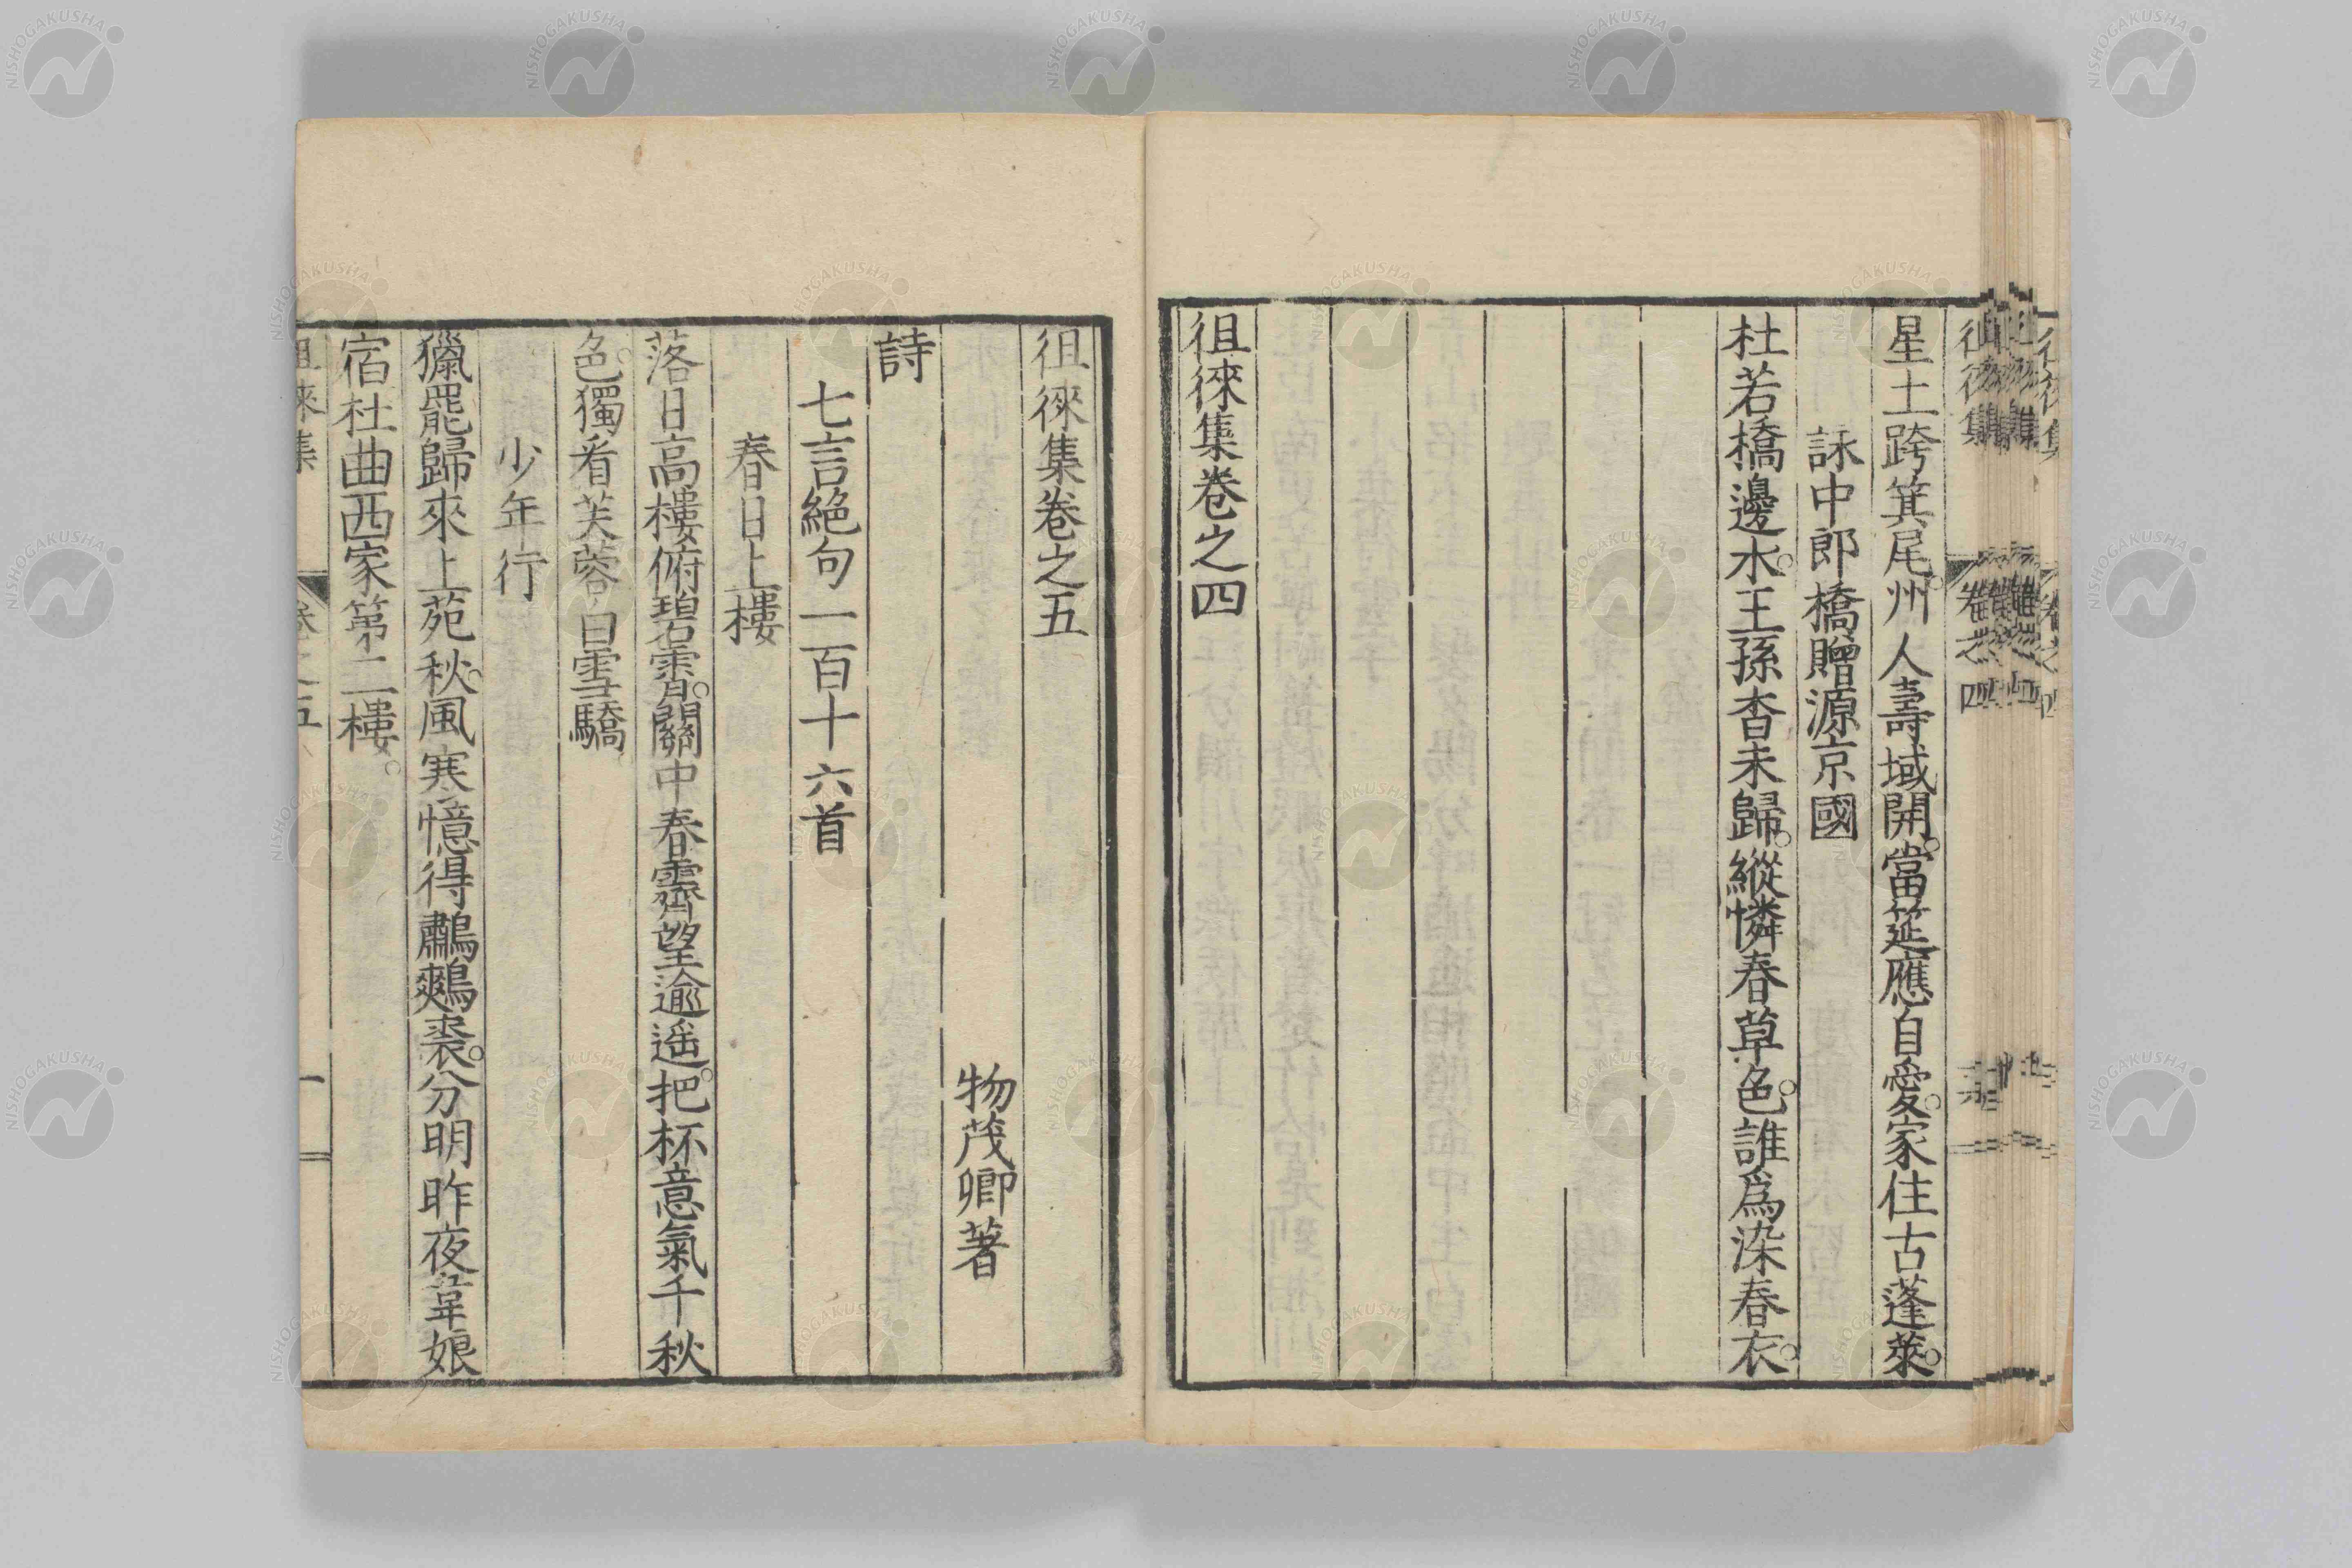 星土跨箕尾。州人壽域開。當筵應自愛。家住古蓬萊。
詠中郎橋贈源京國
杜若橋邊水。王孫杳未歸。縱憐春草色。誰爲染春衣。
徂徠集卷之四
徂徠集卷之五
物茂卿著
詩
七言絕句一百十六首
春日上樓
落日高樓俯碧霄。關中春霽望逾遥。把杯意氣千秋
色。獨看芙蓉白雪驕
少年行
獵罷歸來上苑秋。風寒憶得鷫鷞裘。分明昨夜韋娘
宿杜曲西家第二樓。
徂徠集
卷之五
一
徂徠集
卷之四
NISHOGAKUSHA